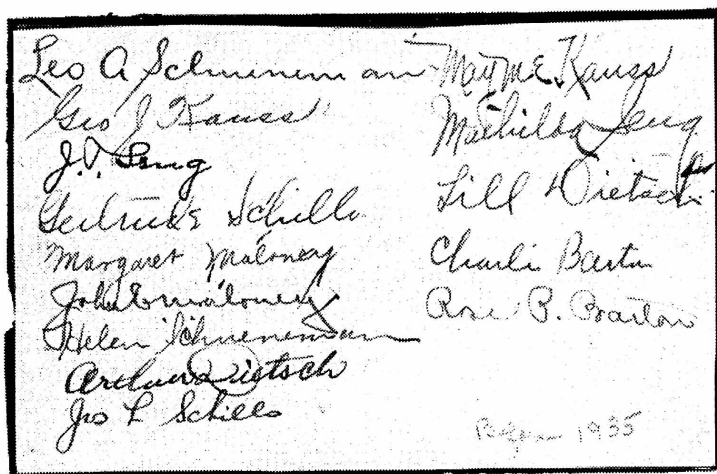 Leo A Schueneman
Geo J Kauss
J. Seng
Gertrude Schillo
Margaret Maloney
John E Maloney
Helen Schueneman
Arthur Dietsch
Jos L Schillo
Mayme Kauss
Mathilda Seng
Lill Dietsch
Charlie Barton
Rose P. Barton
1935